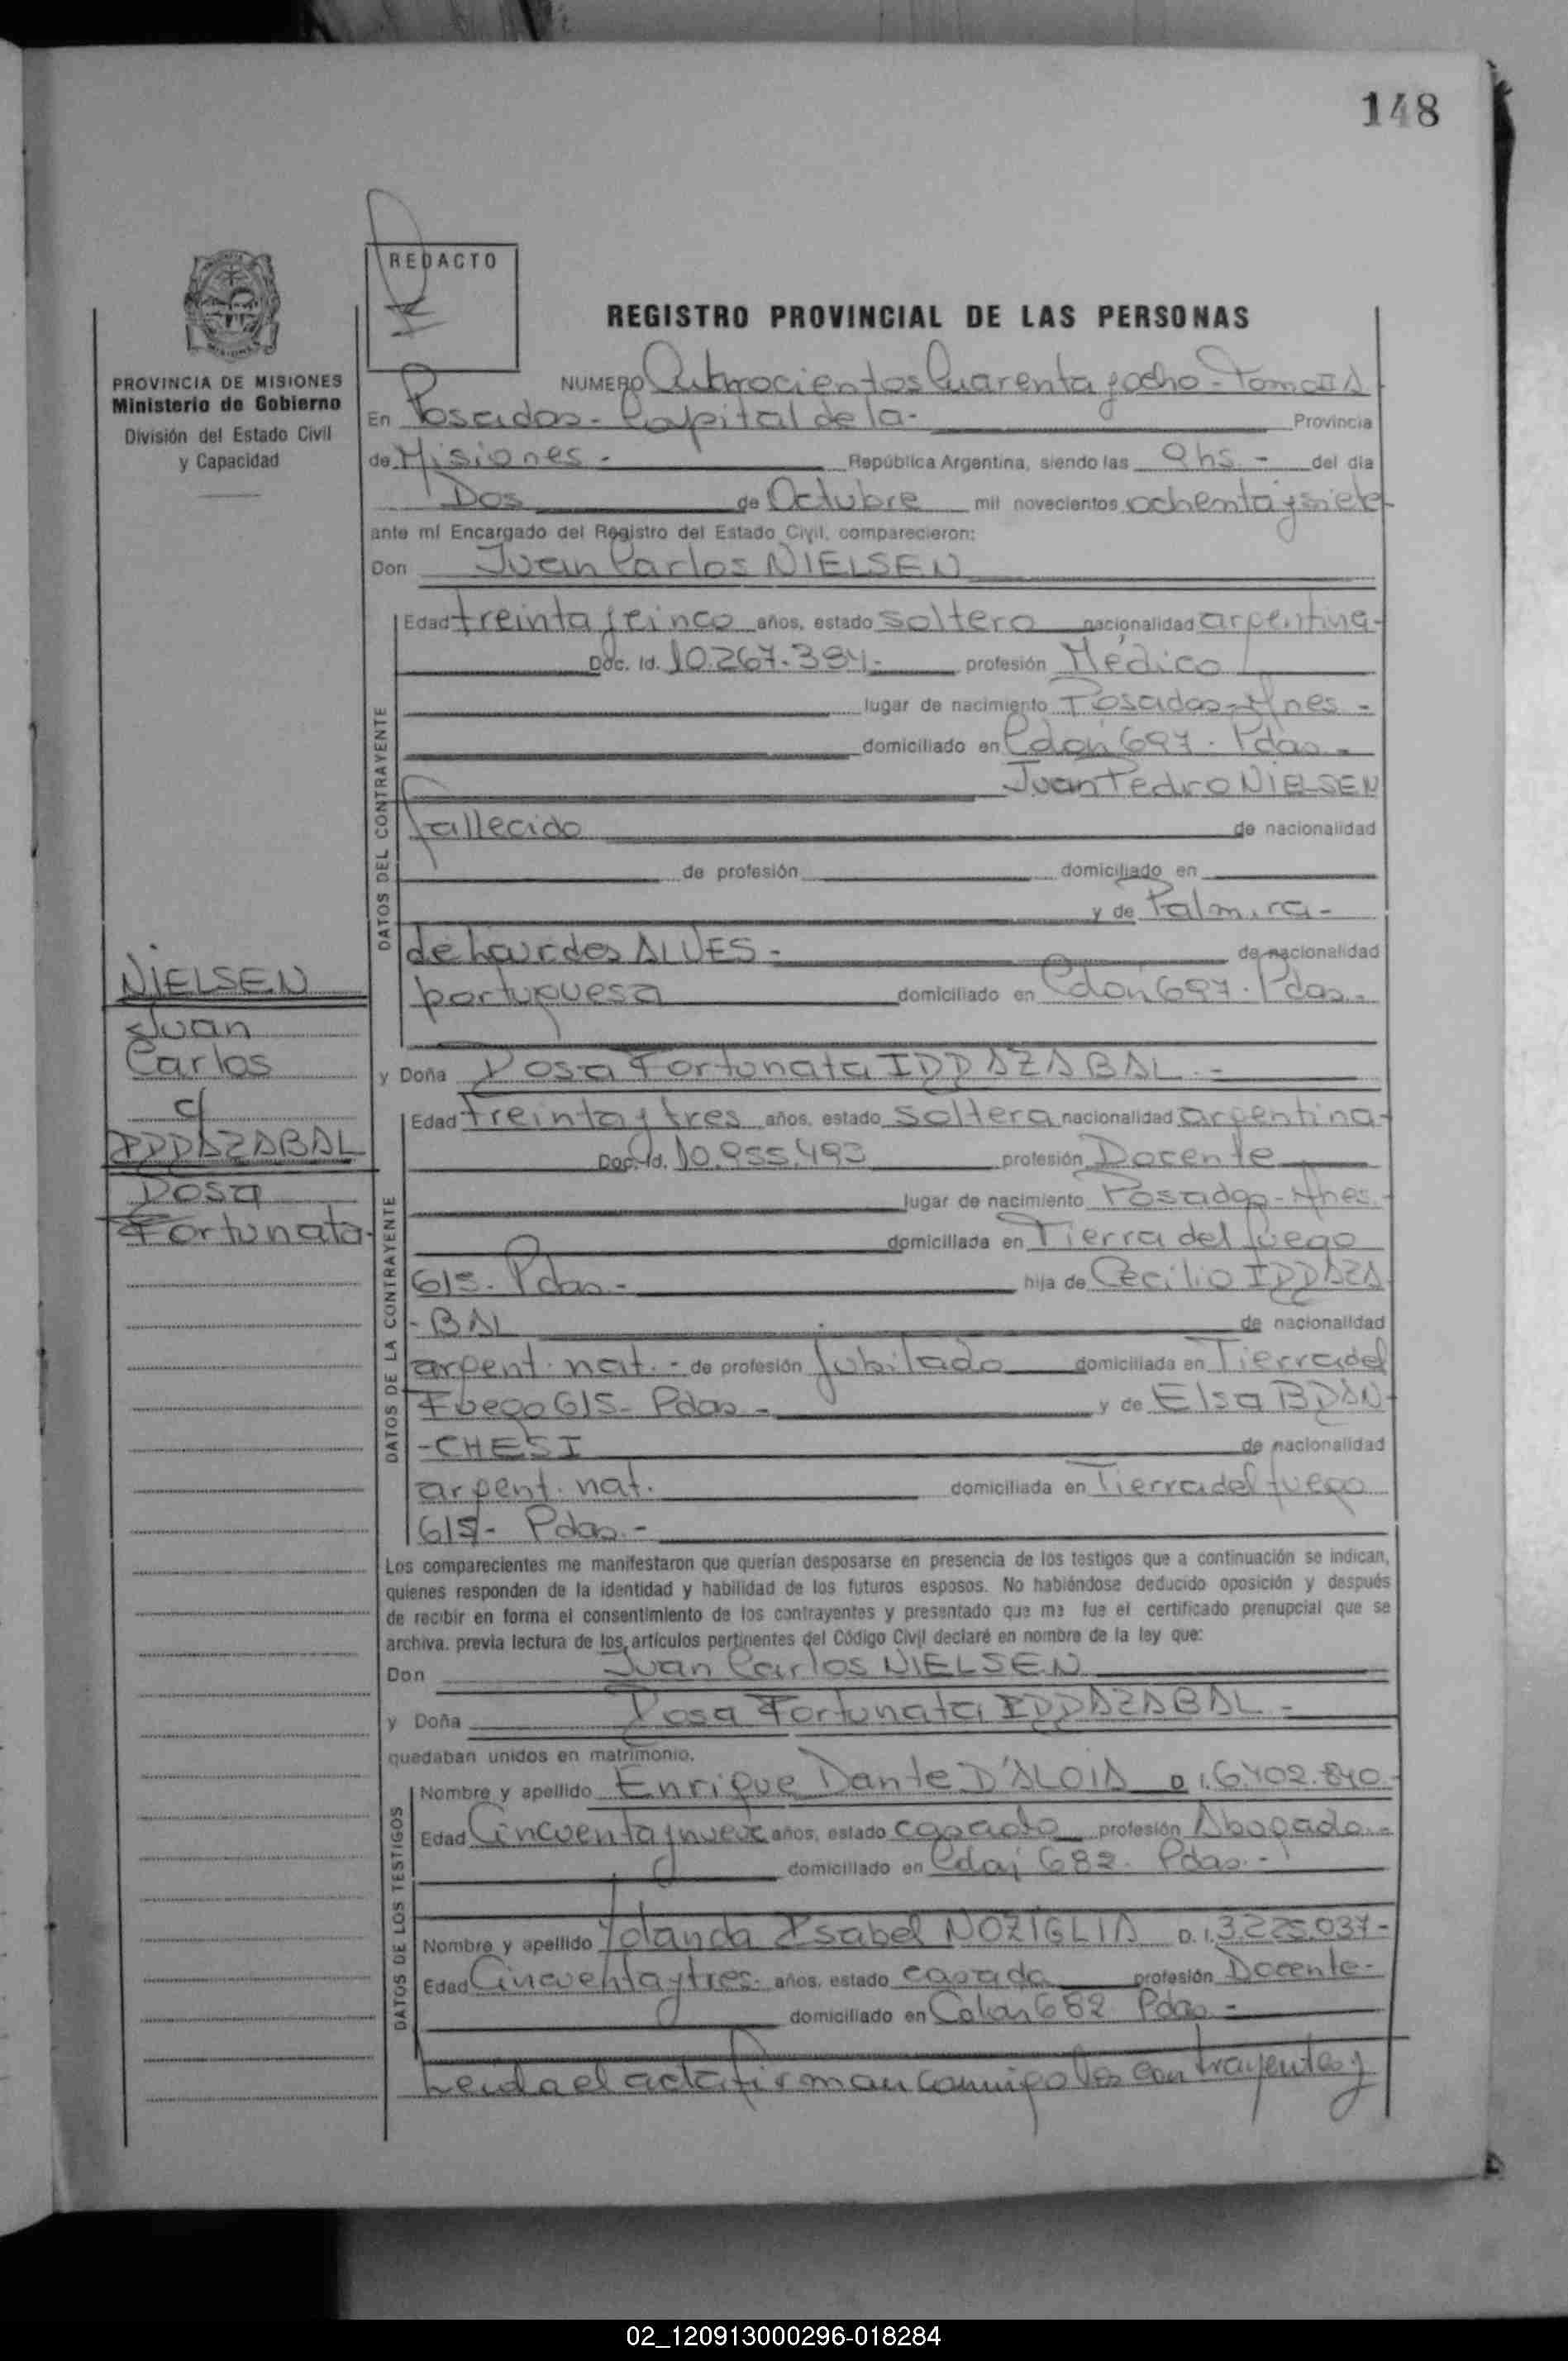 148
REDACTO
REGISTRO PROVINCIAL DE LAS PERSONAS
PROVINCIA DE MISIONES
Ministerio de Gobierno
División del Estado Civil
y Capacidad
NUMERO Cuatrocientos Cuarenta y ocho - Tomo II A
En Posadas - Capital de la - Provincia
de Misiones - República Argentina, siendo las 9 hs. - del día
Dos de Octubre mil novecientos ochenta y siete -
ante mí Encargado del Registro del Estado Civil, comparecieron:
Don Juan Carlos NIELSEN
DATOS DEL CONTRAYENTE
Edad treinta y cinco años, estado soltero nacionalidad argentina -
Doc. Id. 10.267.384 - profesión Médico
lugar de nacimiento Posadas - Mnes -
domiciliado en Colón 697 - Pdas -
Juan Pedro NIELSEN
fallecido de nacionalidad
de profesión domiciliado en
y de Palmira -
de Lourdes ALVES - de nacionalidad
portuguesa domiciliado en Colón 697 - Pdas -
y Doña Rosa Fortunata IRRAZABAL -
DATOS DE LA CONTRAYENTE
Edad treinta y tres años, estado soltera nacionalidad argentina -
Doc. Id. 10.955.493 profesión Docente
lugar de nacimiento Posadas - Mnes. -
domiciliada en Tierra del fuego
615 - Pdas - hija de Cecilio IRRAZA
- BAL de nacionalidad
argent. nat. - de profesión Jubilado domiciliada en Tierra del
Fuego 615 - Pdas - y de Elsa BRAN -
- CHESI de nacionalidad
argent. nat. domiciliada en Tierra del fuego
615 - Pdas. -
Los comparecientes me manifestaron que querían desposarse en presencia de los testigos que a continuación se indican,
quienes responden de la identidad y habilidad de los futuros esposos. No habiéndose deducido oposición y después
de recibir en forma el consentimiento de los contrayentes y presentado que me fue el certificado prenupcial que se
archiva. previa lectura de los artículos pertinentes del Código Civil declaré en nombre de la ley que:
Don Juan Carlos NIELSEN
y Doña Rosa Fortunata IRRAZABAL -
quedaban unidos en matrimonio.
DATOS DE LOS TESTIGOS
Nombre y apellido Enrique Dante D'ALOIA D. I. 6402.840 -
Edad Cincuenta y nueve años, estado casado profesión Abogado. -
domiciliado en Colón 682 - Pdas. -
Nombre y apellido Yolanda Isabel NOZIGLIA D. I. 3.225.037 -
Edad Cincuenta y tres - años, estado casada profesión Docente -
domiciliado en Colon 682 Pdas. -
Leida el acta firman conmigo los contrayentes y
NIELSEN
Juan
Carlos
c/
IRRAZABAL
Rosa
Fortunata -
02_120913000296-018284